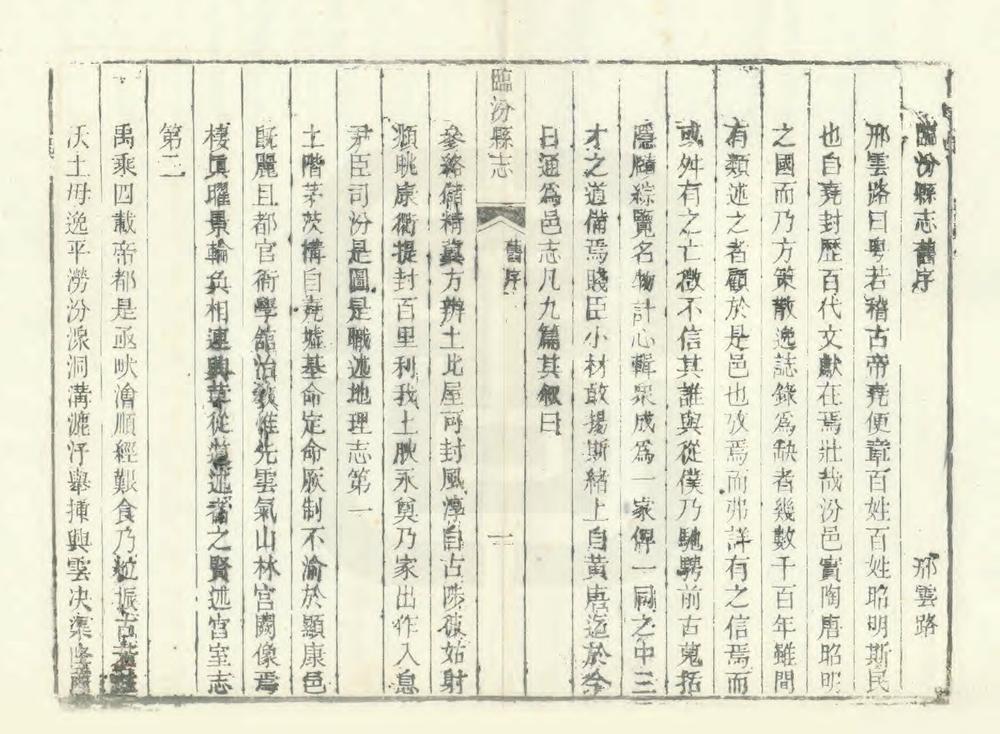 臨汾縣志舊序
邢雲路
邢雲路曰粤若稽古帝堯便章百姓百姓昭明斯民
也自堯封歷百代文獻在焉壯哉汾邑實陶唐昭明
之國而乃方策散逸誌錄爲缺者幾數千百年雖間
有類述之者顧於是邑也攷焉而弗詳有之信焉而
或舛有之亡徵不信其誰與從僕乃馳騁前古蒐括
隱賾綜覽名物計心輯衆成爲一家俾一同之中三
才之道備焉賤臣小材敢揚斯緒上自黃唐迄於今
日通爲邑志凡九篇其敘曰
臨汾縣志
舊序
一
參絡儲精冀方辨土比屋可封風淳自古陟彼姑射
頫眺康衢提封百里利我土腴永奠乃家出作入息
尹臣司汾是圖是職述地理志第一
土階茅茨構自堯墟基命定命厥制不渝於顯康邑
旣麗且都官衙學舘治敎惟先雲氣山林宮闕像焉
棲眞曜景輪奐相連興葺從 述者之賢述宮室志
第二
禹乘四載帝都是亟畎澮順經艱食乃粒振古
沃土毋逸平澇汾源洞溝漉汙舉揷興雲决渠降雨